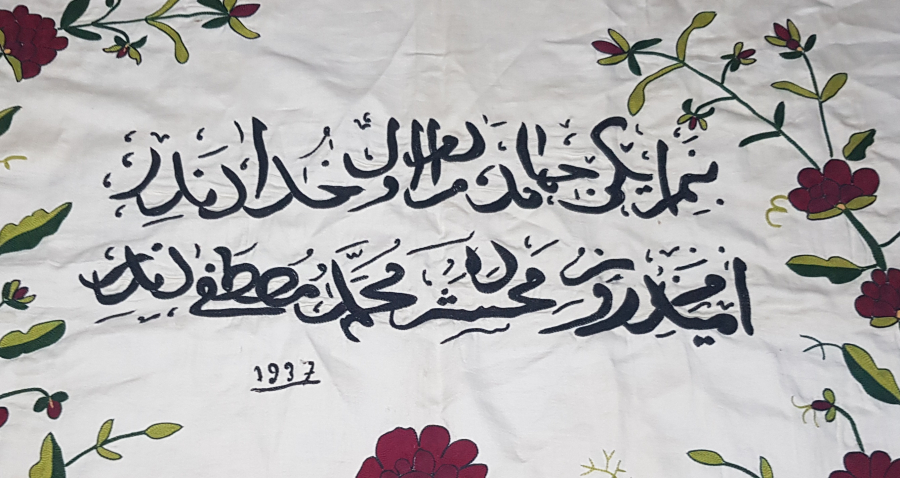 بنم ایکی جهانده مرادم اول خدادندر
امیدم روز محشرده محمد مصطفی دندر
1937